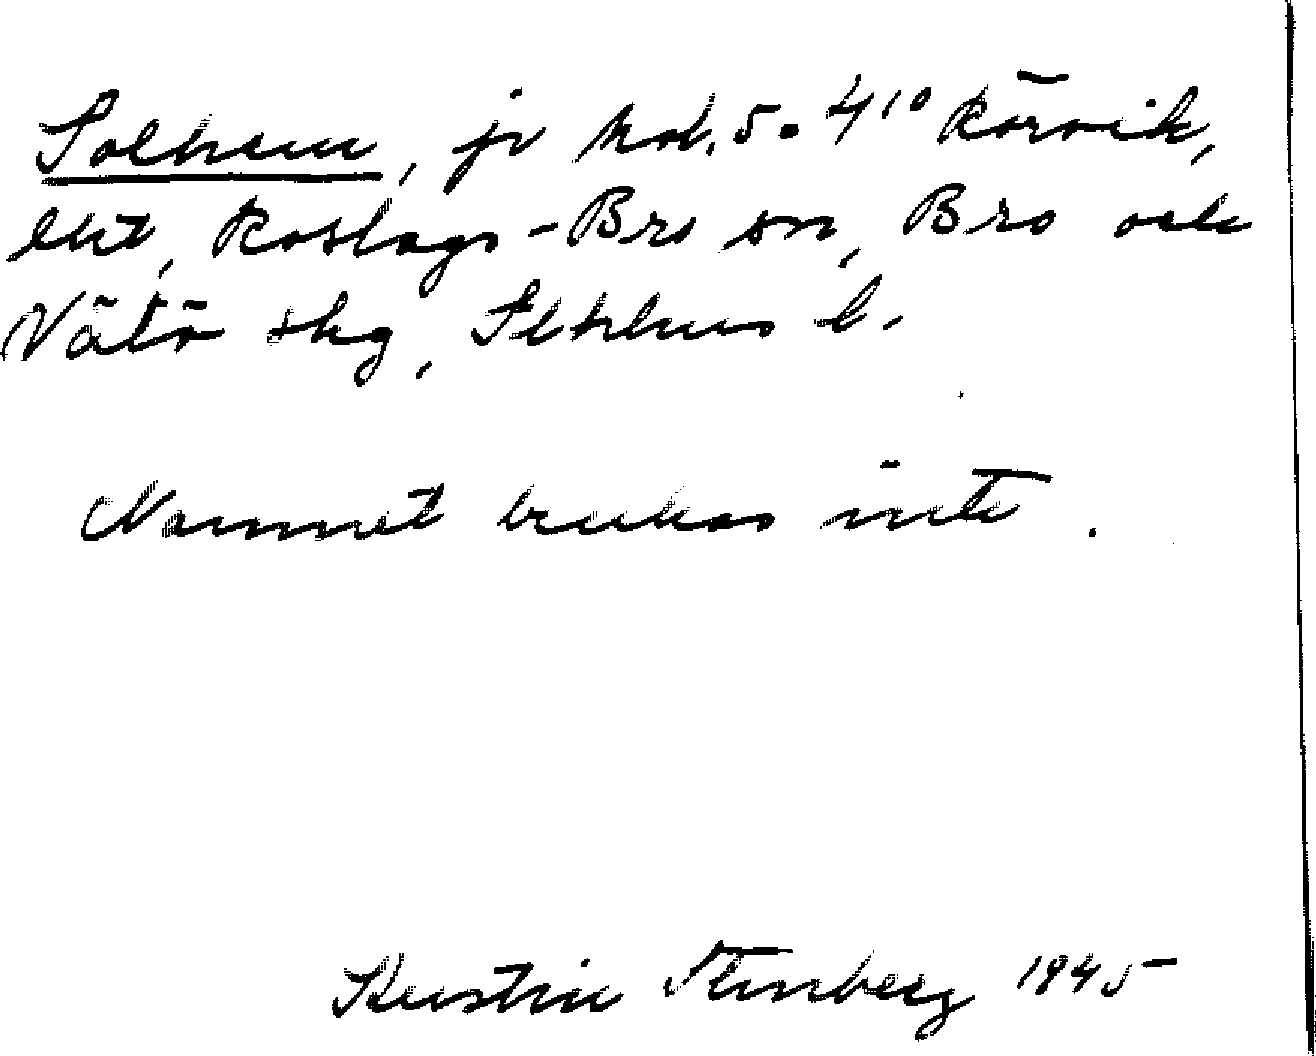 Solhem, jr hd. 5. 4¹⁰ Rörvik,
Roslags-Bro sn, Bro och
Vätö skg, Sthlms l.
Namnet brukas inte.
Kerstin Stenberg 1945